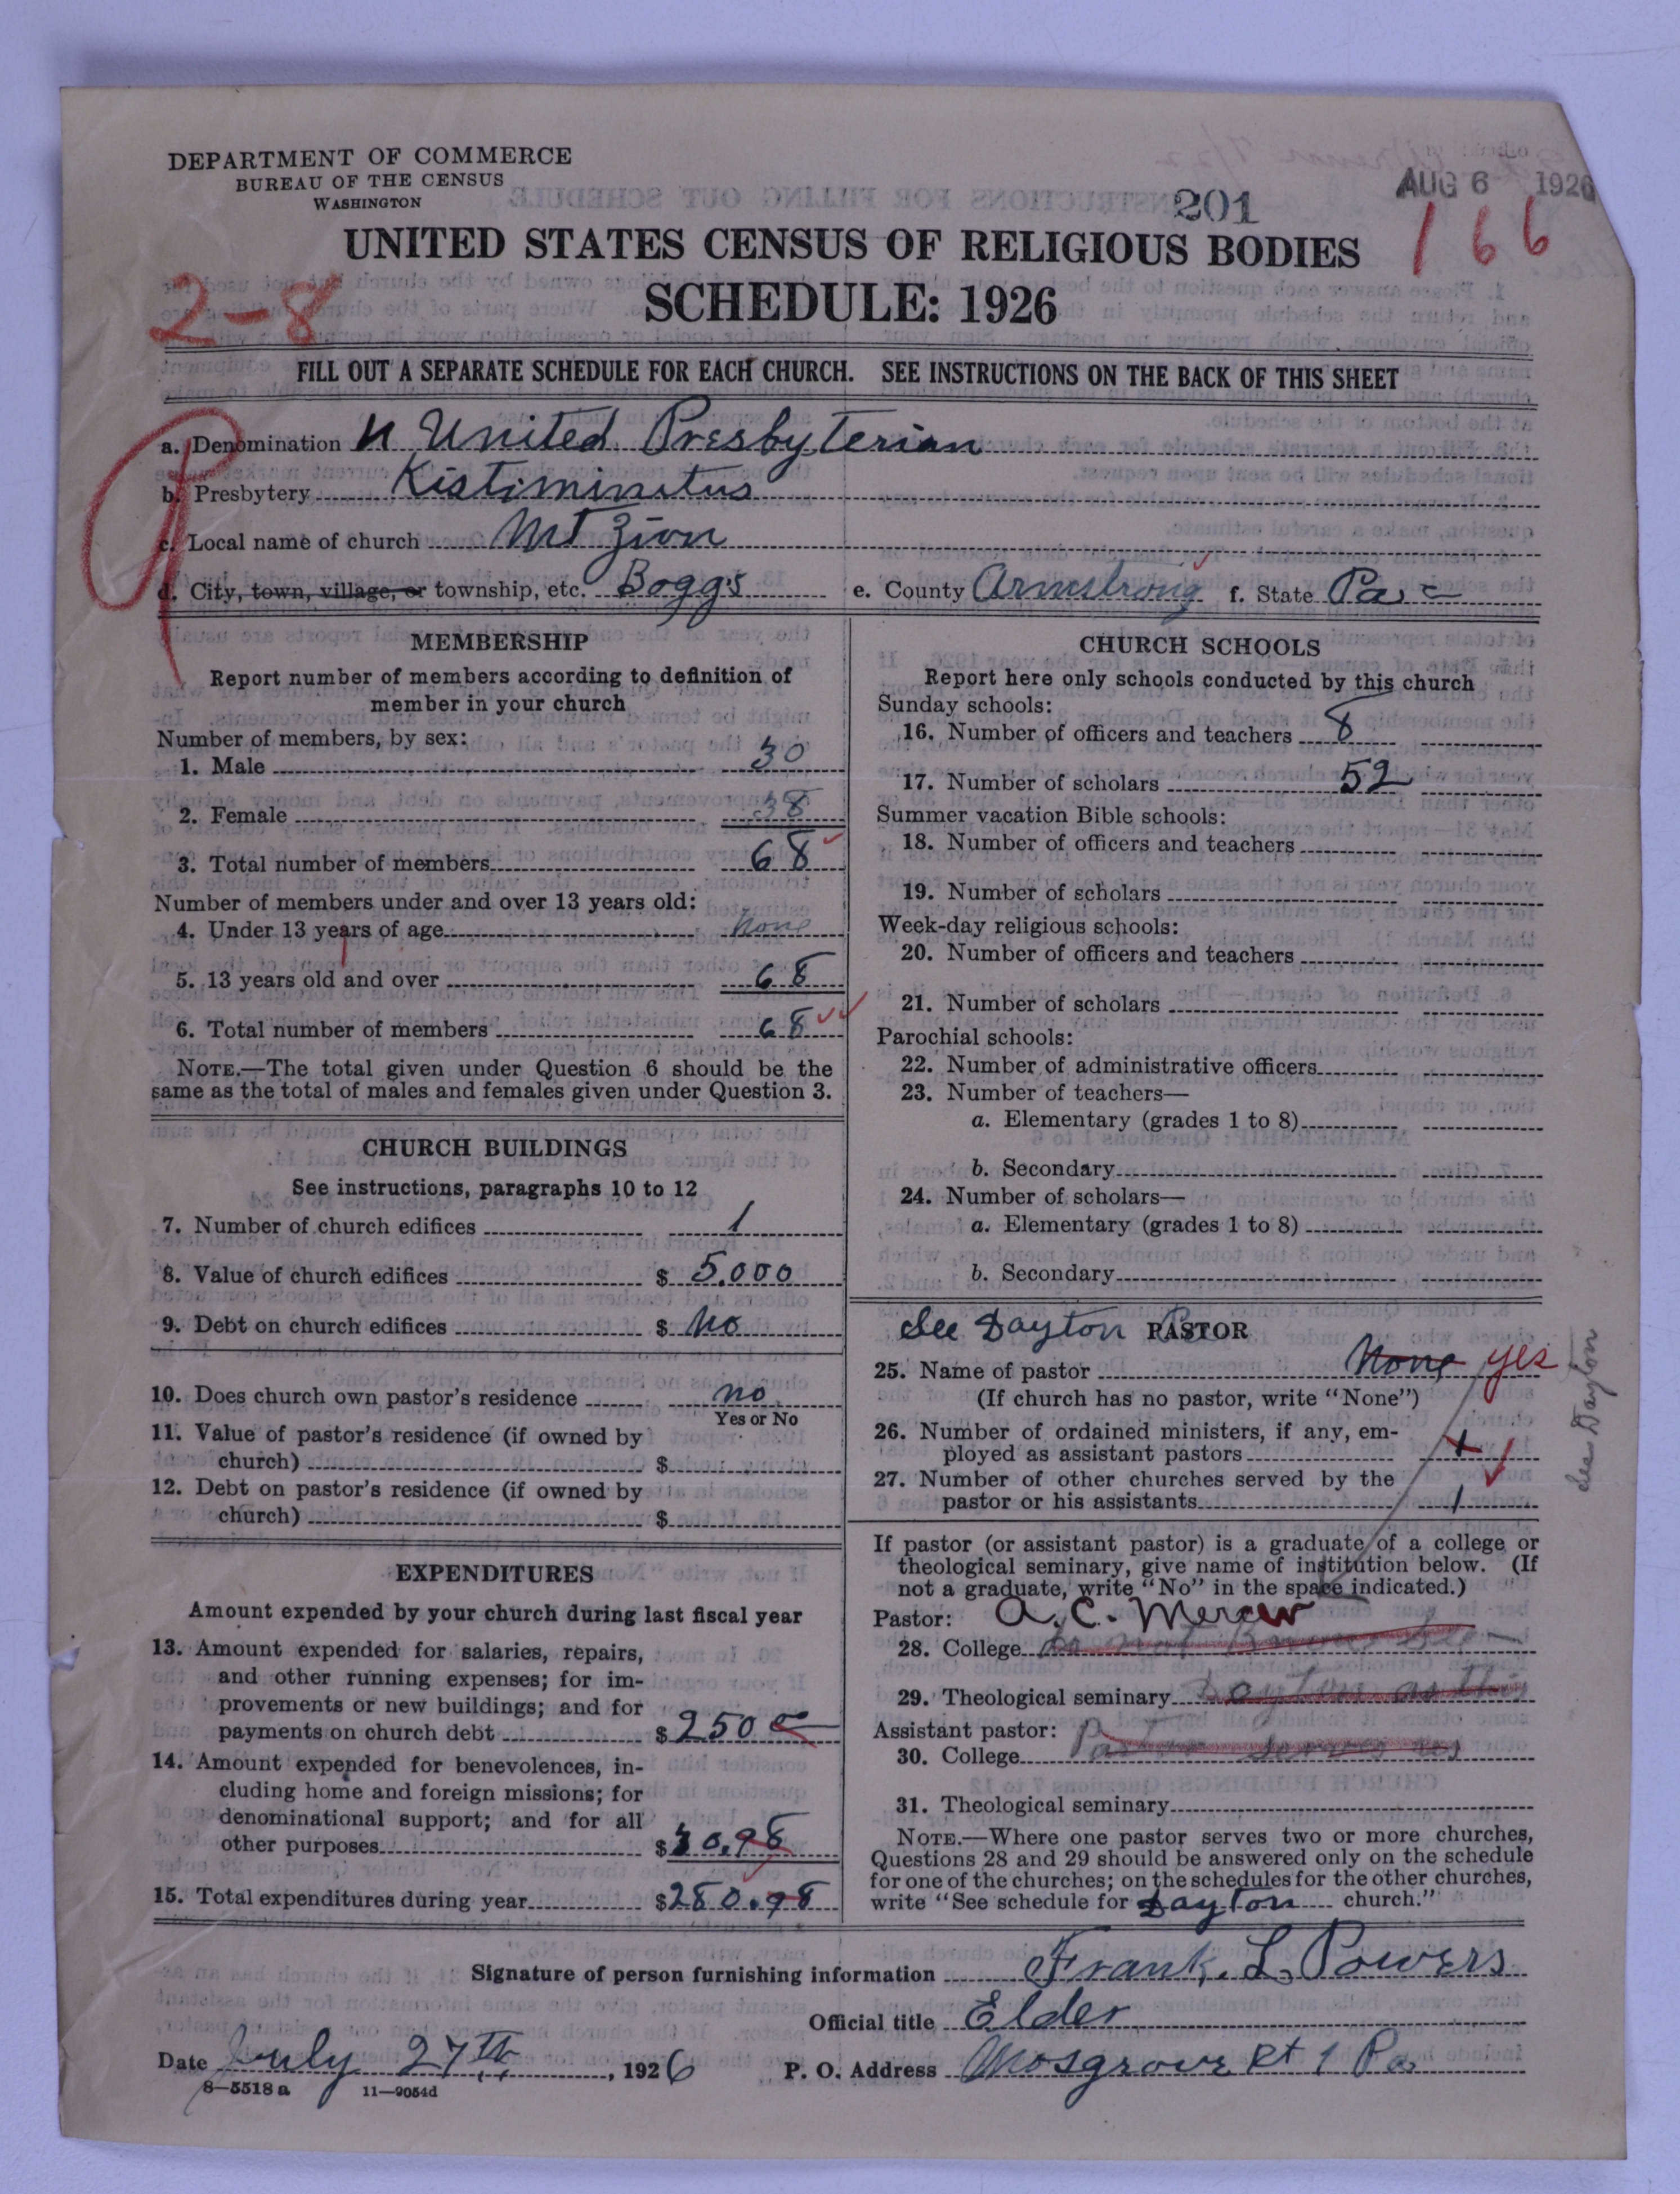 DEPARTMENT OF COMMERCE
BUREAU OF THE CENSUS
WASHINGTON
201
AUG 6 1926
166
UNITED STATES CENSUS OF RELIGIOUS BODIES
2-8
SCHEDULE: 1926
FILL OUT A SEPARATE SCHEDULE FOR EACH CHURCH. SEE INSTRUCTIONS ON THE BACK OF THIS SHEET
a. Denomination United Presbyterian
b. Presbytery Kistiminitus
c. Local name of church Mt Zion
d. City, town, village, or township, etc. Boggs e. County Armstrong f. State Pa
MEMBERSHIP
Report number of members according to definition of
member in your church
Number of members, by sex:
1. Male 30
2. Female 38
3. Total number of members 68
Number of members under and over 13 years old:
4. Under 13 years of age None
5. 13 years old and over 68
6. Total number of members 68
NOTE.—The total given under Question 6 should be the
same as the total of males and females given under Question 3.
CHURCH BUILDINGS
See instructions, paragraphs 10 to 12
7. Number of church edifices 1
8. Value of church edifices $ 5.000
9. Debt on church edifices $ No
10. Does church own pastor's residence no
Yes or No
11. Value of pastor's residence (if owned by
church) $
12. Debt on pastor's residence (if owned by
church) $
EXPENDITURES
Amount expended by your church during last fiscal year
13. Amount expended for salaries, repairs,
and other running expenses; for im-
provements or new buildings; and for
payments on church debt $ 250
14. Amount expended for benevolences, in-
cluding home and foreign missions; for
denominational support; and for all
other purposes $ 30.98
15. Total expenditures during year $ 280.98
CHURCH SCHOOLS
Report here only schools conducted by this church
Sunday schools:
16. Number of officers and teachers 8
17. Number of scholars 52
Summer vacation Bible schools:
18. Number of officers and teachers
19. Number of scholars
Week-day religious schools:
20. Number of officers and teachers
21. Number of scholars
Parochial schools:
22. Number of administrative officers
23. Number of teachers—
a. Elementary (grades 1 to 8)
b. Secondary
24. Number of scholars—
a. Elementary (grades 1 to 8)
b. Secondary
See Dayton Pa PASTOR
25. Name of pastor None yes
(If church has no pastor, write "None")
26. Number of ordained ministers, if any, em-
ployed as assistant pastors 1
27. Number of other churches served by the
pastor or his assistants 1
See Dayton
If pastor (or assistant pastor) is a graduate of a college or
theological seminary, give name of institution below. (If
not a graduate, write "No" in the space indicated.)
Pastor: A. C.
28. College Do not Know See
29. Theological seminary Dayton as this
Assistant pastor: Pastor serves us
30. College
31. Theological seminary
NOTE.—Where one pastor serves two or more churches,
Questions 28 and 29 should be answered only on the schedule
for one of the churches; on the schedules for the other churches,
write "See schedule for Dayton church."
Signature of person furnishing information Frank. L. Powers
Official title Elder
Date July 27th, 1926 P. O. Address Mosgrove Rt 1 Pa
8-5518 a 11-9054d